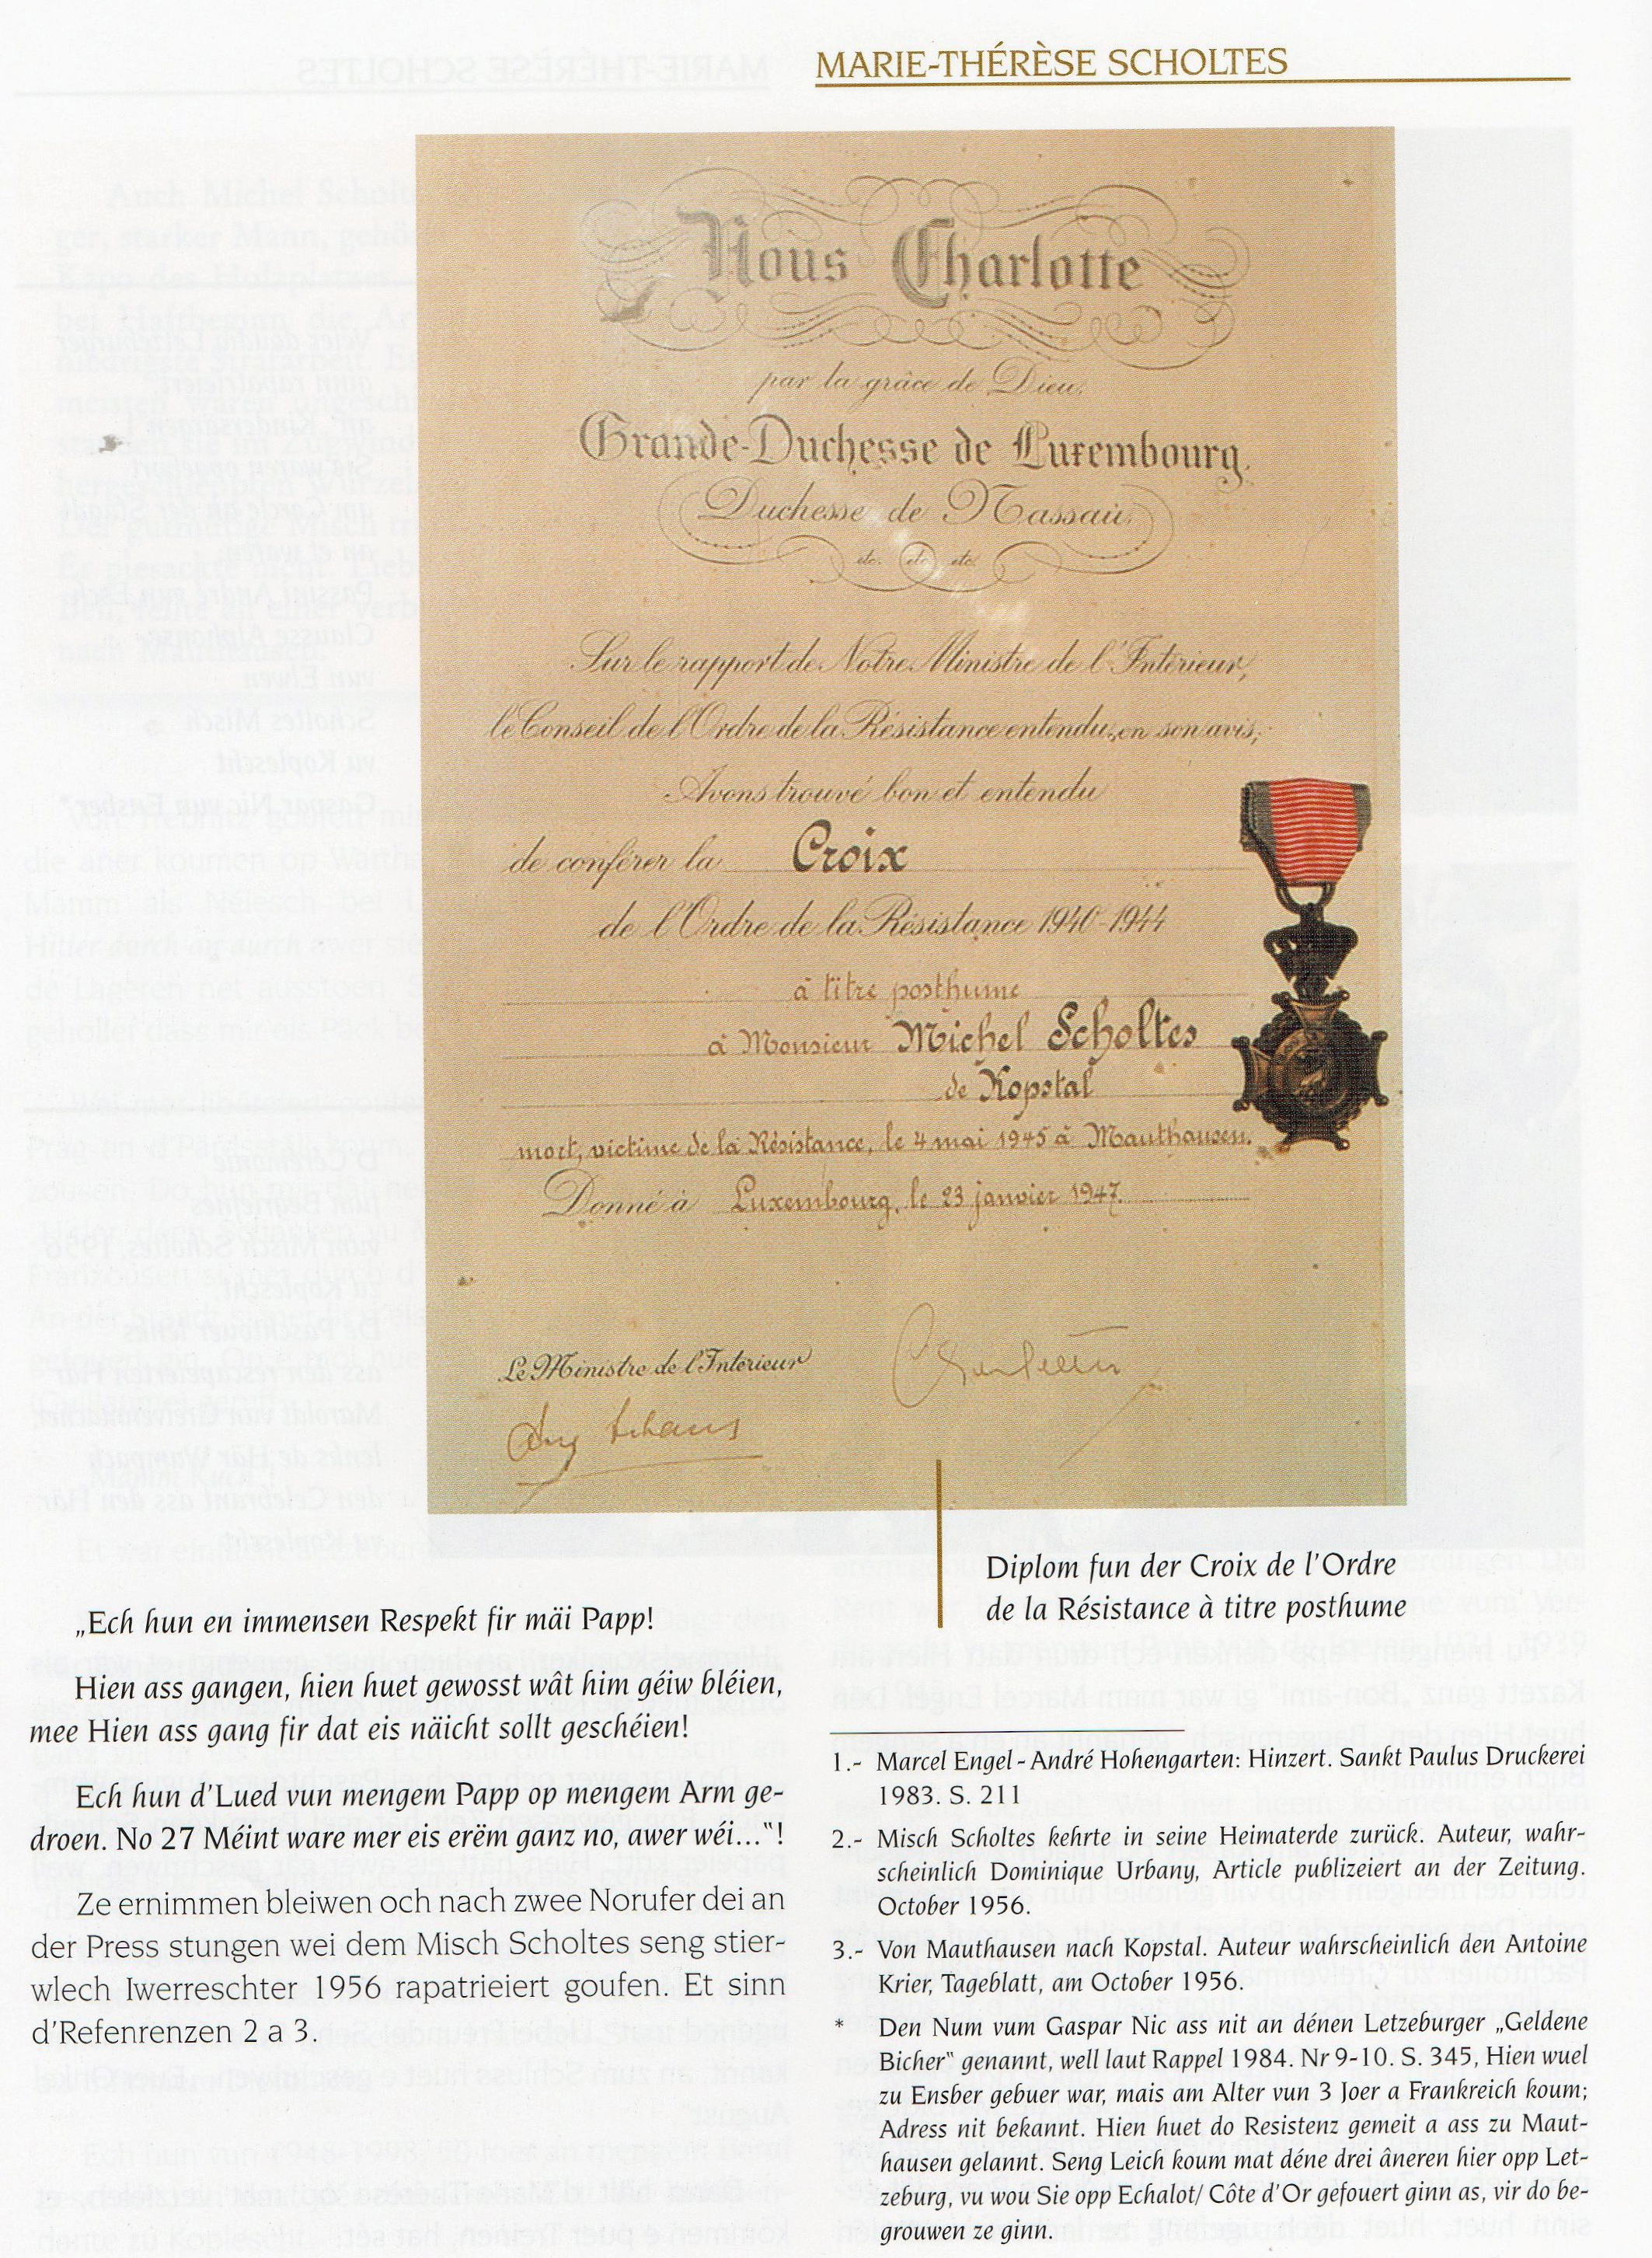 MARIE-THÉRÈSE SCHOLTES
Nous Charlotte
par la grâce de Dieu,
Grande-Duchesse de Luxembourg,
Duchesse de Nassau,
etc. etc. etc.
Sur le rapport de Notre Ministre de l'Intérieur,
le Conseil de l'Ordre de la Résistance entendu en son avis,
Avons trouvé bon et entendu
de conférer la Croix
de l'Ordre de la Résistance 1940-1944
à titre posthume
à Monsieur Michel Scholtes
de Kopstal
mort, victime de la Résistance, le 4 mai 1945 à Mauthausen.
Donné à Luxembourg, le 23 janvier 1947.
Le Ministre de l'Intérieur
Charlotte
Diplom fun der Croix de l'Ordre
de la Résistance à titre posthume
„Ech hun en immensen Respekt fir mäi Papp!
Hien ass gangen, hien huet gewosst wât him géiw bléien,
mee Hien ass gang fir dat eis näicht sollt geschéien!
Ech hun d'Lued vun mengem Papp op mengem Arm ge-
droen. No 27 Méint ware mer eis erëm ganz no, awer wéi...“!
Ze ernimmen bleiwen och nach zwee Norufer dei an
der Press stungen wei dem Misch Scholtes seng stier-
wlech Iwerreschter 1956 rapatrieiert goufen. Et sinn
d'Refenrenzen 2 a 3.
1.- Marcel Engel - André Hohengarten: Hinzert. Sankt Paulus Druckerei
1983. S. 211
2.- Misch Scholtes kehrte in seine Heimaterde zurück. Auteur, wahr-
scheinlich Dominique Urbany, Article publizeiert an der Zeitung.
October 1956.
3.- Von Mauthausen nach Kopstal. Auteur wahrscheinlich den Antoine
Krier, Tageblatt, am October 1956.
* Den Num vum Gaspar Nic ass nit an dénen Letzeburger „Geldene
Bicher“ genannt, well laut Rappel 1984. Nr 9-10. S. 345, Hien wuel
zu Ensber gebuer war, mais am Alter vun 3 Joer a Frankreich koum;
Adress nit bekannt. Hien huet do Resistenz gemeit a ass zu Maut-
hausen gelannt. Seng Leich koum mat déne drei âneren hier opp Let-
zeburg, vu wou Sie opp Echalot/ Côte d'Or gefouert ginn as, vir do be-
grouwen ze ginn.